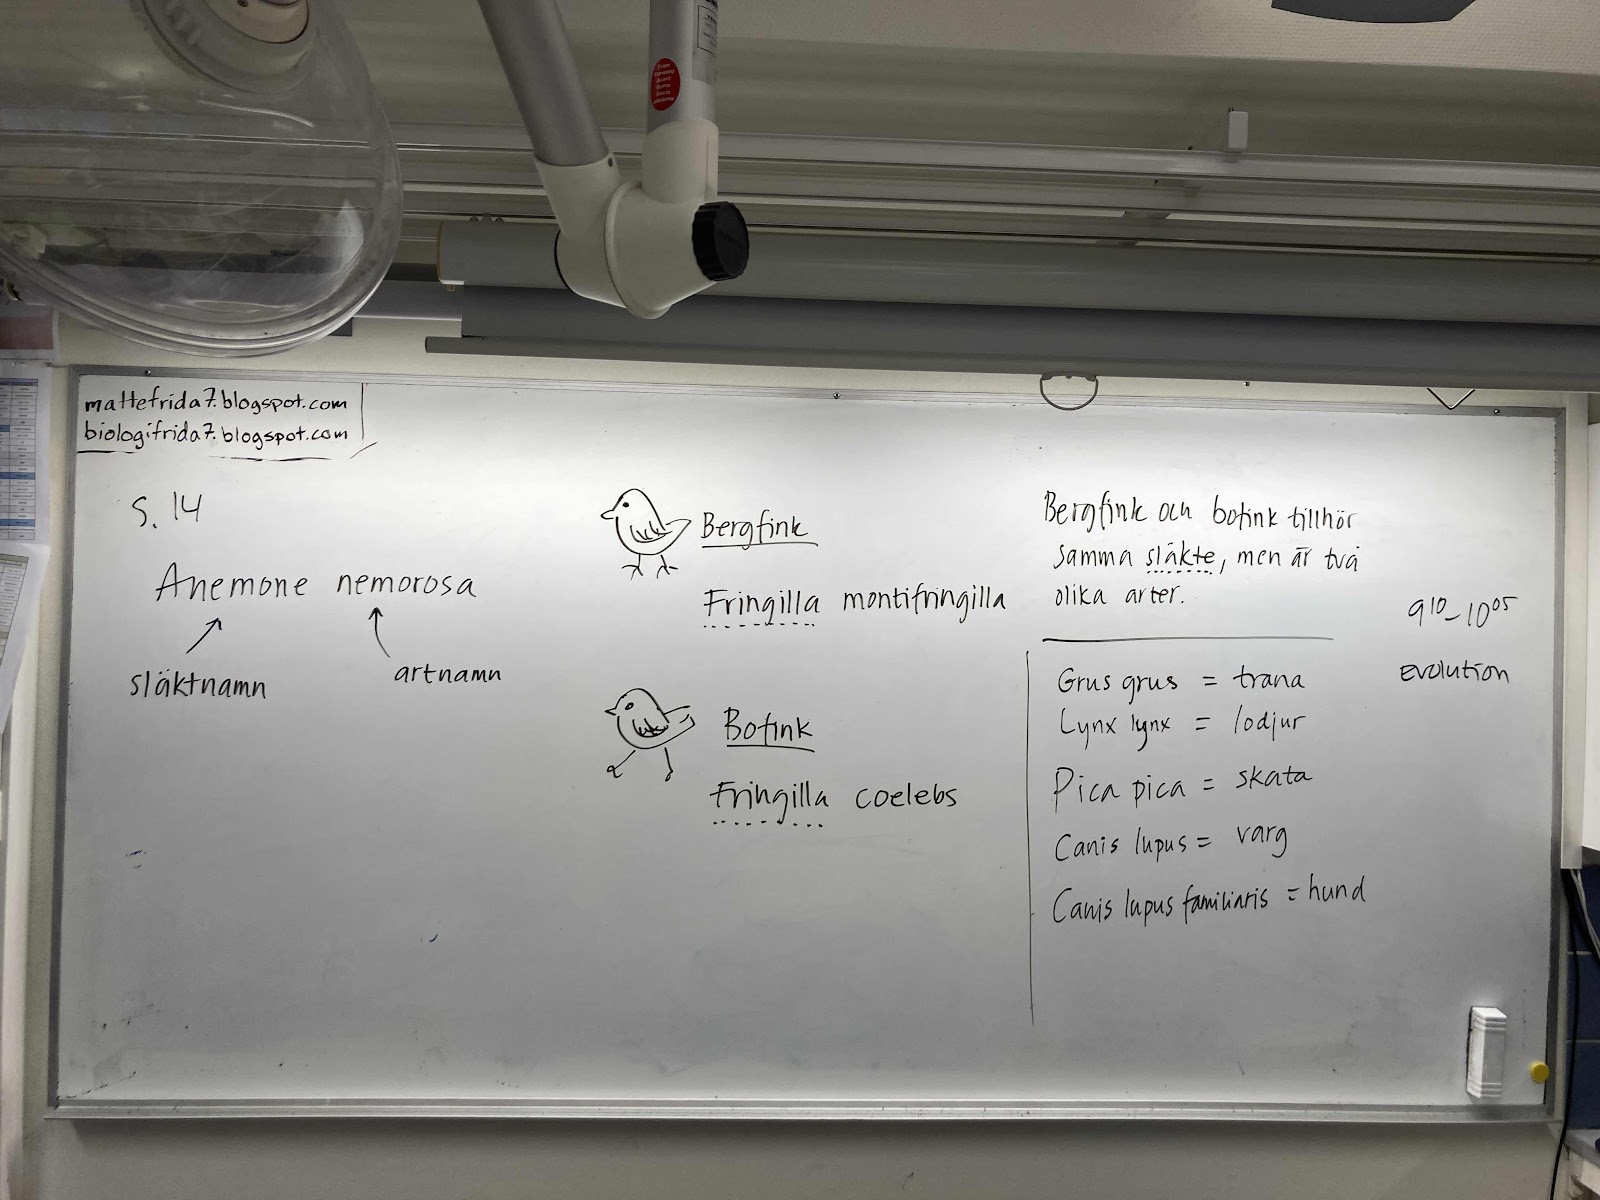 mattefrida7.blogspot.com
biologifrida7.blogspot.com
S. 14
Anemone nemorosa
släktnamn
artnamn
Bergfink
Fringilla montifringilla
Bofink
Fringilla coelebs
Bergfink och bofink tillhör
samma släkte, men är två
olika arter.
Grus grus = trana
Lynx lynx = lodjur
Pica pica = skata
Canis lupus = varg
Canis lupus familiaris = hund
9¹⁰-10⁰⁵
evolution